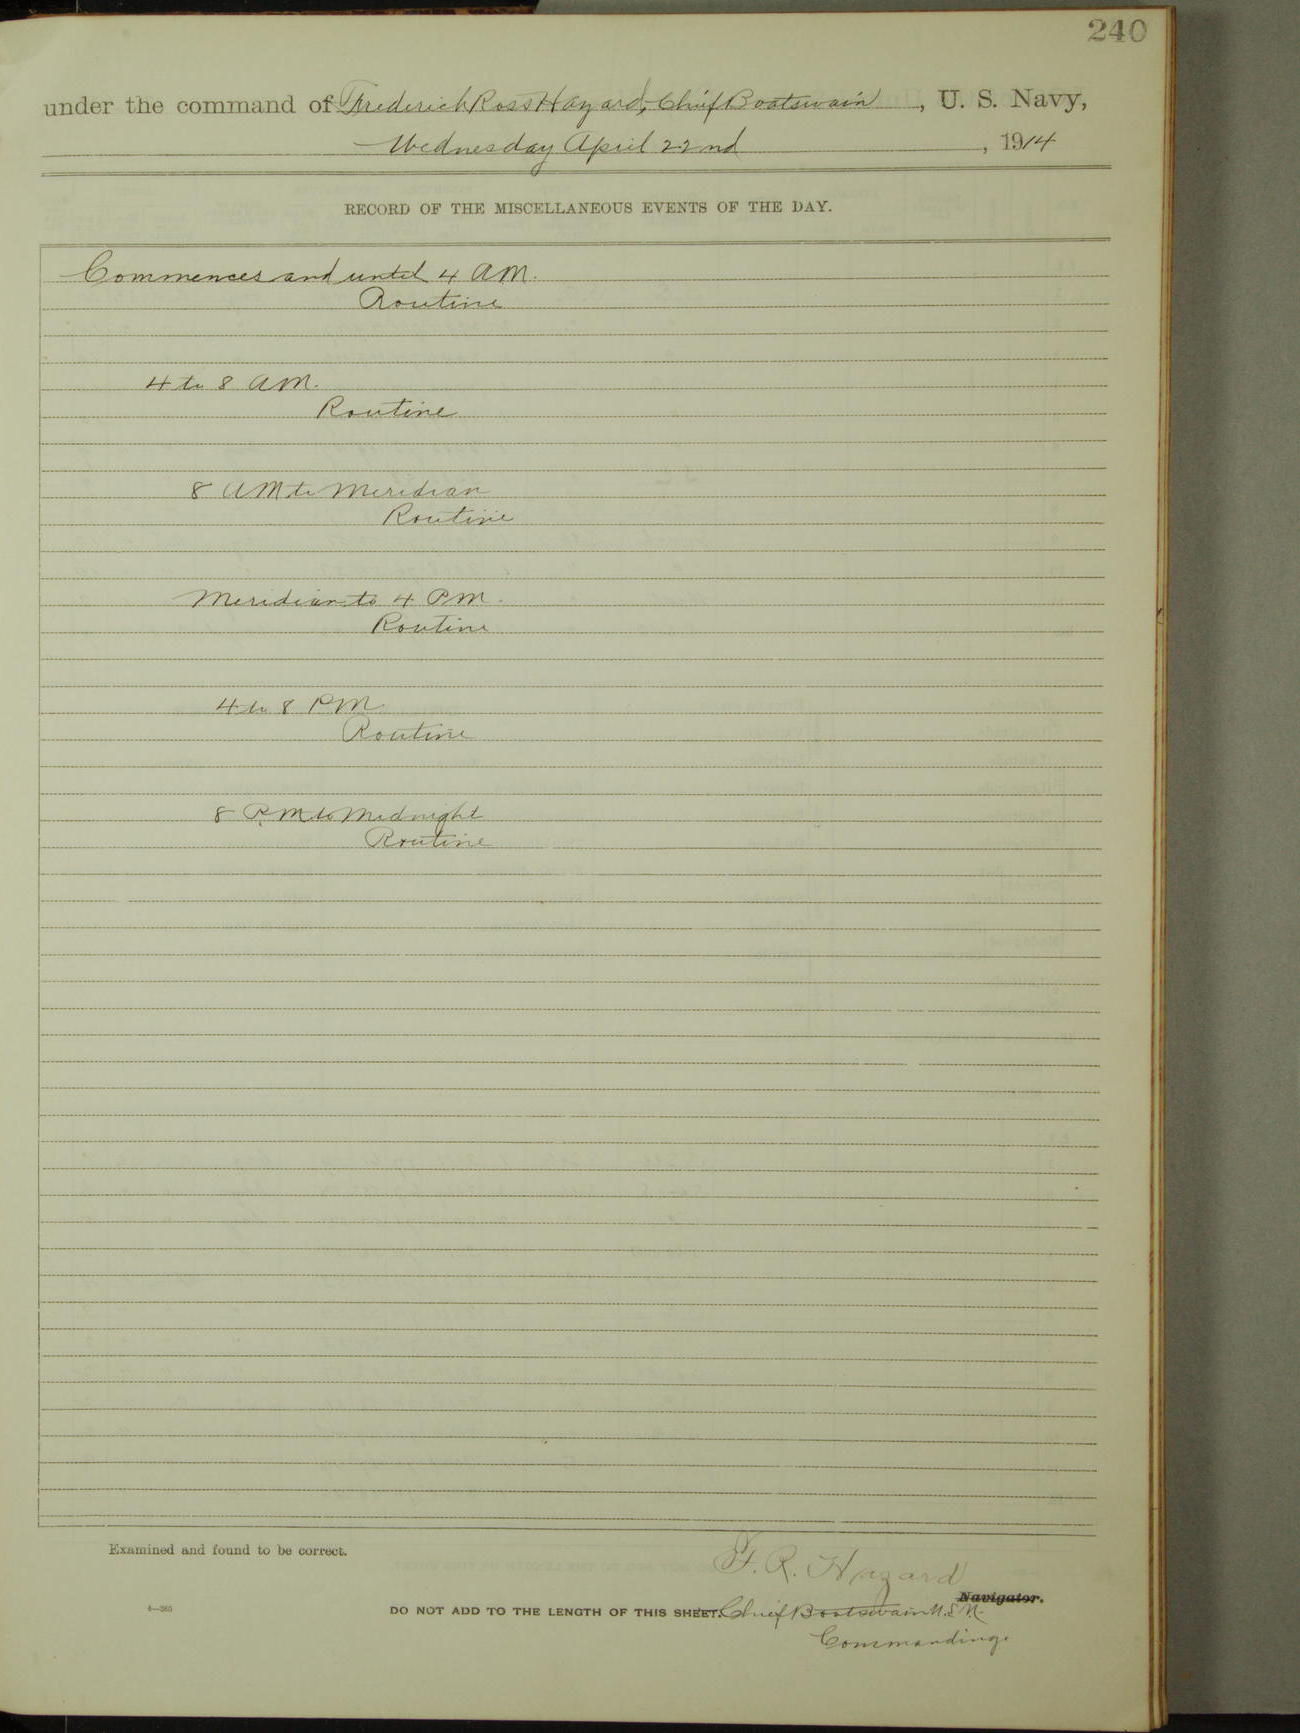 240
under the command of Frederick Ross Hazard, Chief Boatswain, U. S. Navy,
Wednesday April 22nd, 1914
RECORD OF THE MISCELLANEOUS EVENTS OF THE DAY.
Commences and until 4 AM.
Routine
4 to 8 AM.
Routine
8 AM to Meridian
Routine
Meridian to 4 PM.
Routine
4 to 8 PM
Routine
8 P.M to Midnight
Routine
Examined and found to be correct.
F. R. Hazard
Navigator.
4—265
DO NOT ADD TO THE LENGTH OF THIS SHEET. Chief Boatswain U.S.N.
Commanding.